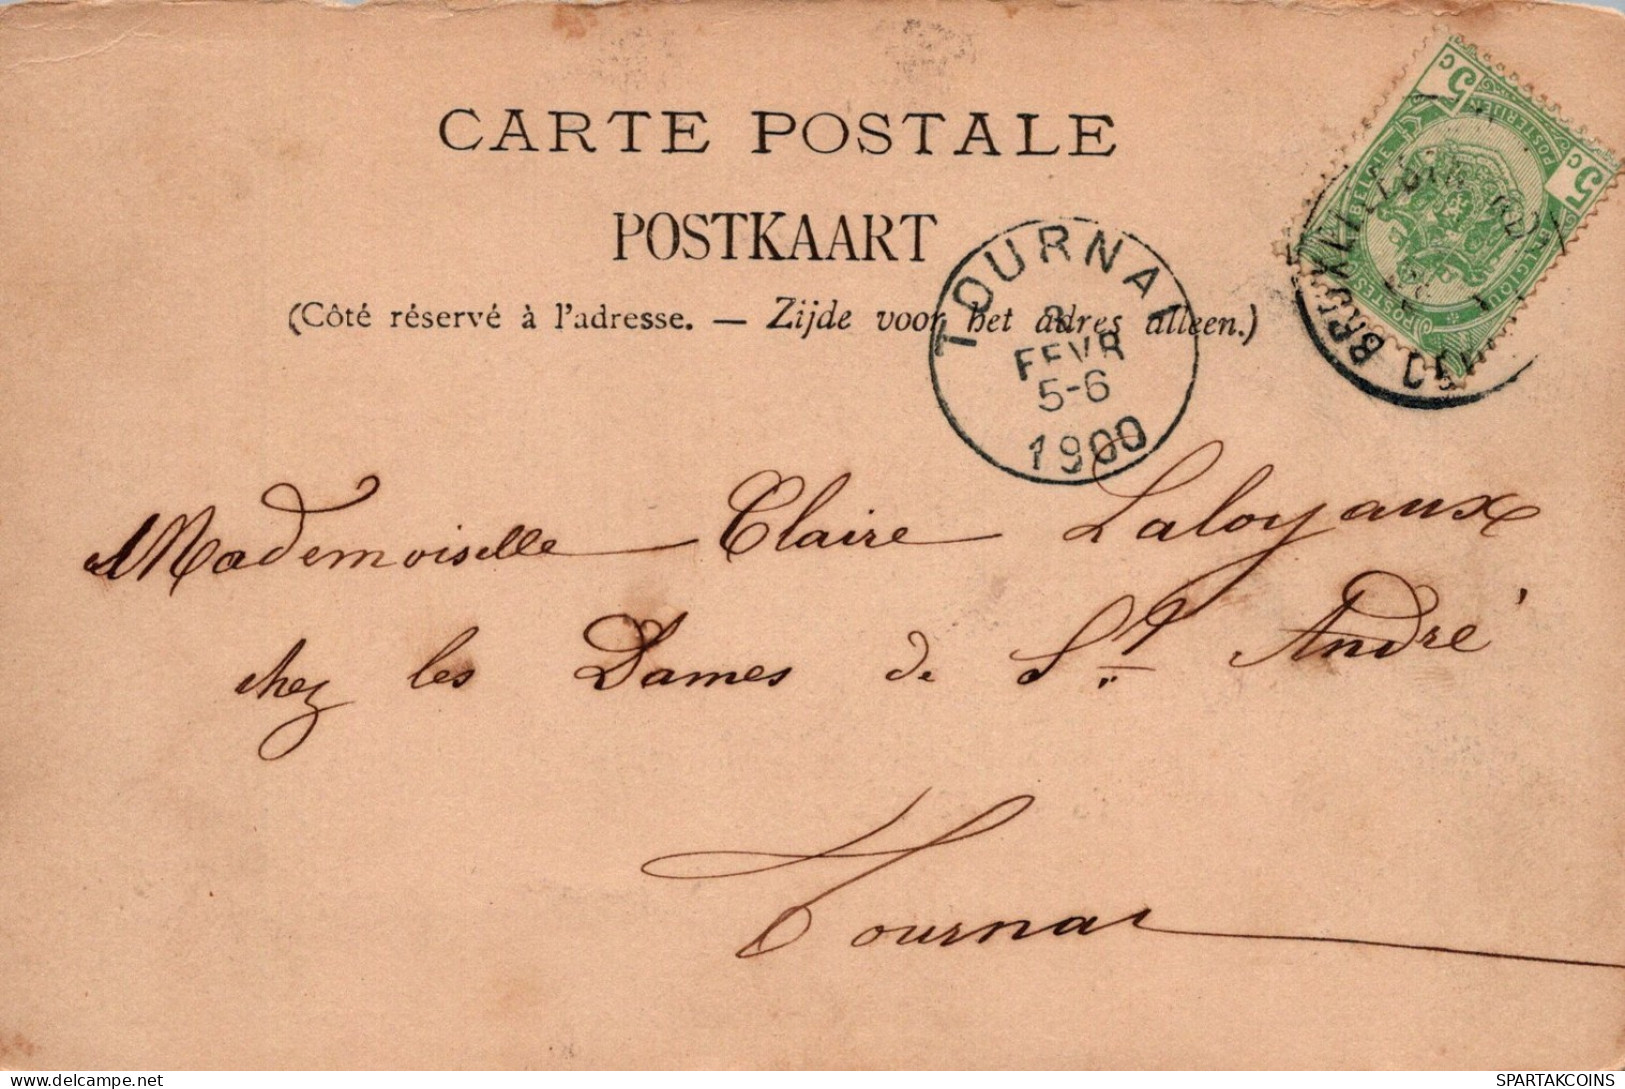 CARTE POSTALE
POSTKAART
(Côté réservé à l'adresse. — Zijde voor het adres alleen.)
TOURNAI
8
FEVR
5-6
1900
BRUXELLES
5c
5c
POSTES BELGIQUE
BELGIE POSTERIJEN
Mademoiselle Claire Laloyaux
chez les Dames de St André
Tournai
delcampe.net
SPARTAKCOINS